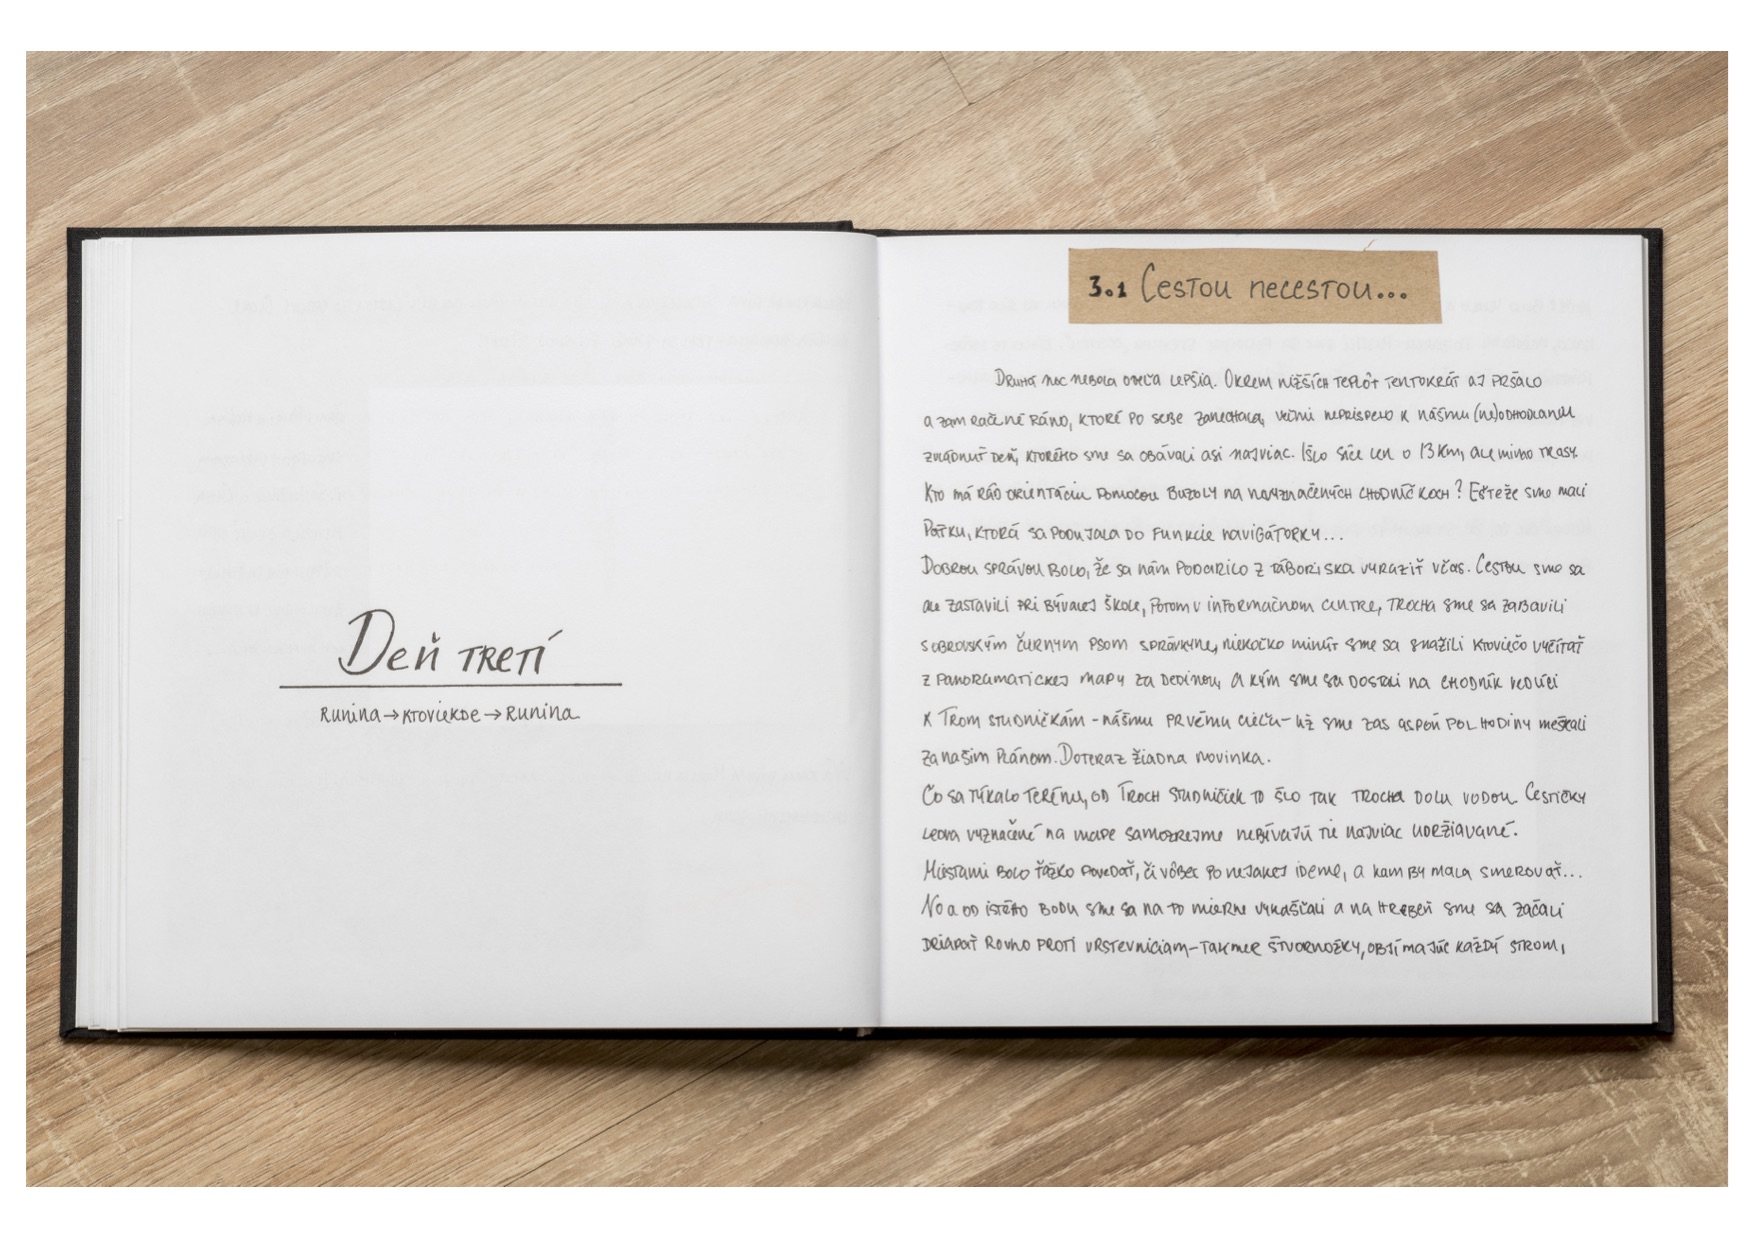 Deň tretí
Runina→ktoviekde→Runina
3.1 Cestou necestou...
Druhá noc nebola oveľa lepšia. Okrem nižších teplôt tentokrát aj pršalo
a zamračené ráno, ktoré po sebe zanechala, veľmi neprispelo k nášmu (ne)odhodlaniu
zvládnuť deň, ktorého sme sa obávali asi najviac. Išlo síce len o 13 km, ale mimo trasy.
Kto má rád orientáciu pomocou buzoly na nevyznačených chodníčkoch? Ešteže sme mali
Paťku, ktorá sa podujala do funkcie navigátorky...
Dobrou správou bolo, že sa nám podarilo z táboriska vyraziť včas. Cestou sme sa
ale zastavili pri bývalej škole, potom v informačnom centre, trocha sme sa zabavili
s obrovským čiernym psom správkyne, niekoľko minút sme sa snažili ktoviečo vyčítať
z panoramatickej mapy za dedinou, a kým sme sa dostali na chodník vedúci
k Trom studničkám - nášmu prvému cieľu - už sme zas aspoň pol hodiny meškali
za našim plánom. Doteraz žiadna novinka.
Čo sa týkalo terénu, od Troch studničiek to šlo tak trocha dolu vodou. Cestičky
ledva vyznačené na mape samozrejme nebývajú tie najviac udržiavané.
Miestami bolo ťažko povedať, či vôbec po nejakej ideme, a kam by mala smerovať...
No a od istého bodu sme sa na to mierne vykašľali a na hrebeň sme sa začali
driapať rovno proti vrstevniciam - takmer štvornožky, objímajúc každý strom,